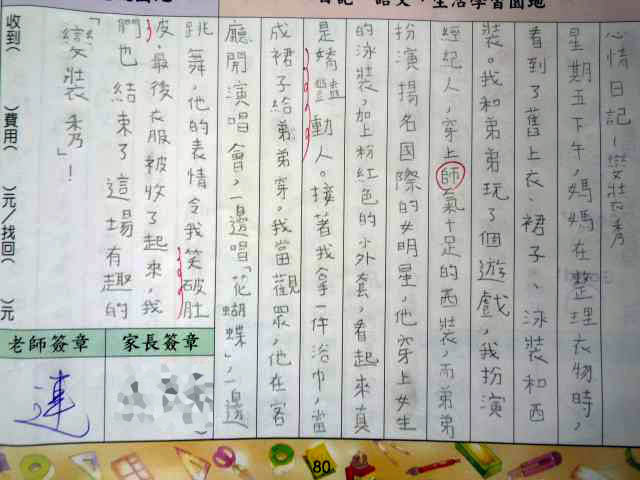 日記、語文、生活學習園地
心情日記-變裝秀
星期五下午,媽媽在整理衣物時,
看到了舊上衣、裙子、泳裝和西
裝。我和弟弟玩了個遊戲,我扮演
經紀人,穿上師氣十足的西裝,而弟弟
扮演揚名國際的女明星,他穿上女生
的泳裝,加上粉紅色的小外套,看起來真
是嬌豔動人。接著我拿一件浴巾,當
成裙子給弟弟穿。我當觀眾,他在客
廳開演唱會,一邊唱「花蝴蝶」,一邊
跳舞,他的表情令我笑破肚
皮,最後衣服被收了起來,我
們也結束了這場有趣的
「變裝秀」!
收到( )費用( )元/找回( )元
家長簽章
老師簽章
連
80